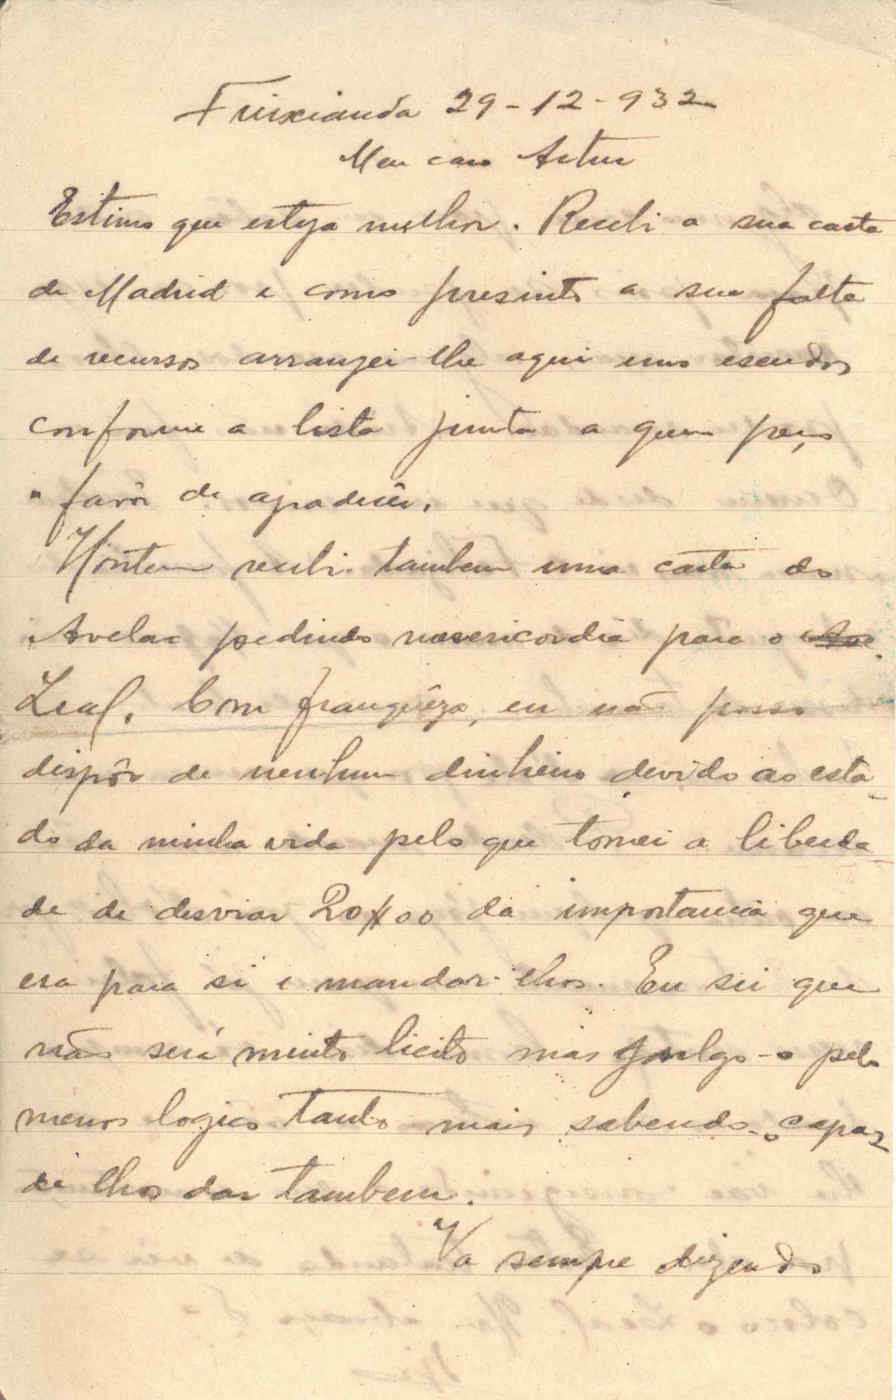 Freixianda 29-12-932
Meu caro Artur
Estimo que esteja melhor. Recebi a sua carta
de Madrid e como presinto a sua falta
de recursos arranjei-lhe aqui uns escudos
conforme a lista junta a quem peço
o favôr de agradecêr.
Hontem recebi tambem uma carta do
Avelar pedindo misericordia para o
Leal. Com franquêza, eu não posso
dispôr de nenhum dinheiro devido ao esta_
do da minha vida pelo que tomei a liberda_
de de desviar 20$00 da importancia que
era para si e mandar-lhos. Eu sei que
não será muito licito mas julgo-o pelo
menos logico tanto mais sabendo-o capaz
de lhos dar tambem.
Va sempre dizendo